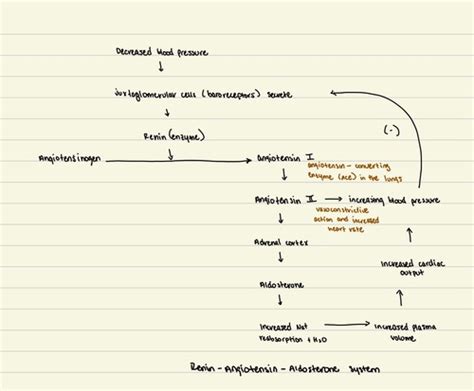 Decreased blood pressure
juxtaglomerular cells (baroreceptors) secrete
Renin (enzyme)
(-)
Angiotensinogen
angiotensin I
angiotensin - converting
enzyme (ACE) in the lungs
Angiotensin II → increasing blood pressure
vasoconstrictive
action and increased
heart rate
Adrenal cortex
Increased cardiac
output
Aldosterone
Increased Na+
reabsorption + H2O
Increased plasma
volume
Renin - Angiotensin - Aldosterone system